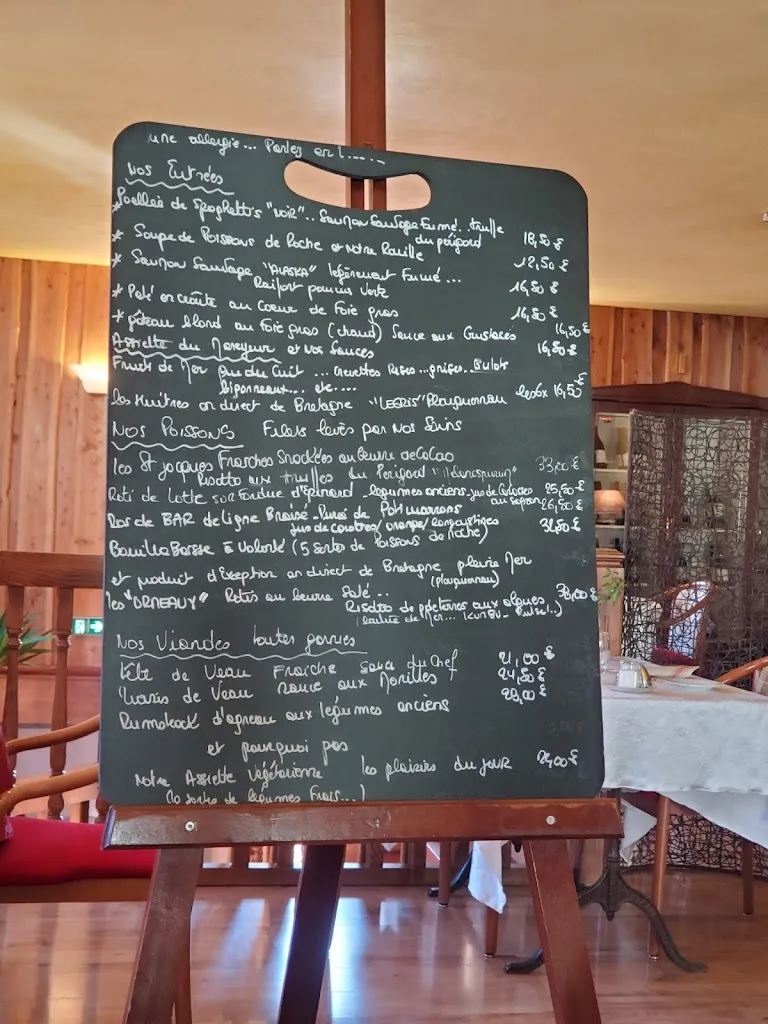 une allergie... Parlez en !.....
Nos Entrées
* Poellée de Spaghettis "Noir".. Saumon Sauvage Fumé. truffe
du périgord 18,50 €
* Soupe de Poissons de Roche et Notre Rouille 12,50 €
* Saumon Sauvage "ALASKA" légèrement Fumé ...
Raifort pommes verte 16,50 €
* Paté en croûte au Coeur de Foie gras 16,50 €
* gâteau blond au foie gras (chaud) Sauce aux Crustacés 16,50 €
Assiette du Mareyeur et Nos Sauces 16,50 €
Fruits de Mer que du Cuit ... crevettes Roses...grises.. Bulots
bigorneaux... etc....
les Huîtres en direct de Bretagne "LEGRIS" Plouguernau les 6x 16,50 €
Nos Poissons Filets levés par Nos Soins
les St jacques Fraiches Snackées au beurre de Cacao
Risotto aux truffes du Périgord 33,00 €
Roti de Lotte sur Fondue d'épinard - légumes anciens - jus de Carottes 25,50 €
au safran 26,50 €
Dos de BAR de ligne Braisé - Purée de Potimarrons
jus de carottes/orange/langoustines 31,50 €
BouillaBaisse à Volonté (5 sortes de Poissons de Roche)
et produit d'Exception en direct de Bretagne pleine Mer
(plouguernau)
les "ORMEAUX" Rotis au beurre Salé.. 38,00 €
Risotto de p. de terres aux algues
(laitue de Mer... KomBU - Dulse!..)
Nos Viandes toutes garnies
tête de Veau Fraiche Sauce du Chef 21,00 €
de Veau sauce aux Morilles 24,50 €
Rumsteack d'agneau aux légumes anciens 28,00 €
et pourquoi pas
Notre Assiette Végétarienne les plaisirs du jour 24,00 €
(10 sortes de légumes Frais...)